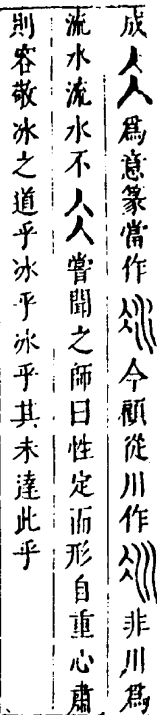 成仌爲意篆當作今顧從川作非川爲
流水流水不仌嘗聞之師曰性定而形自重心肅
則容敬冰之道乎冰乎冰乎其未達此乎